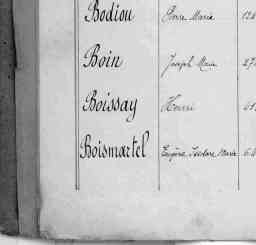 Bodiou Pierre Marie
Boin Joseph Marie
Boissay Henri
Boismartel Eugène Isidore Marie